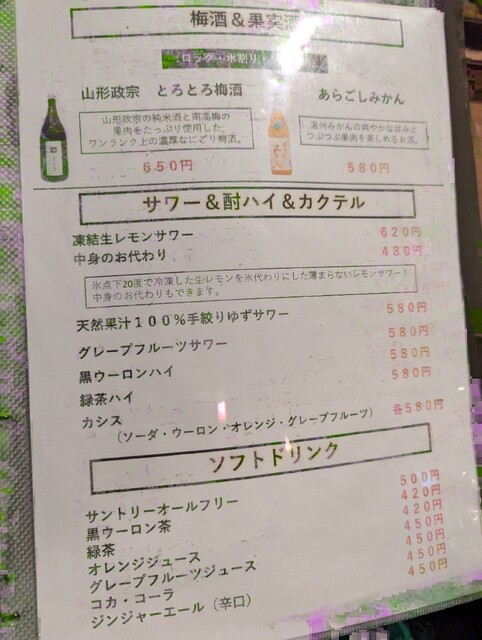 梅酒＆果実酒
ロック・水割り・
山形政宗 とろとろ梅酒
山形政宗の純米酒と南高梅の
果肉をたっぷり使用した、
ワンランク上の濃厚なにごり梅酒。
650円
あらごしみかん
温州みかんの爽やかな甘みと
つぶつぶ果肉を楽しめるお酒。
580円
サワー＆酎ハイ＆カクテル
凍結生レモンサワー 620円
中身のお代わり 480円
氷点下20度で冷凍した生レモンを氷代わりにした薄まらないレモンサワー！
中身のお代わりもできます。
天然果汁１００％手絞りゆずサワー 580円
グレープフルーツサワー 580円
黒ウーロンハイ 580円
緑茶ハイ 580円
カシス 各580円
（ソーダ・ウーロン・オレンジ・グレープフルーツ）
ソフトドリンク
サントリーオールフリー 500円
黒ウーロン茶 420円
緑茶 420円
オレンジジュース 450円
グレープフルーツジュース 450円
コカ・コーラ 450円
ジンジャーエール（辛口） 450円